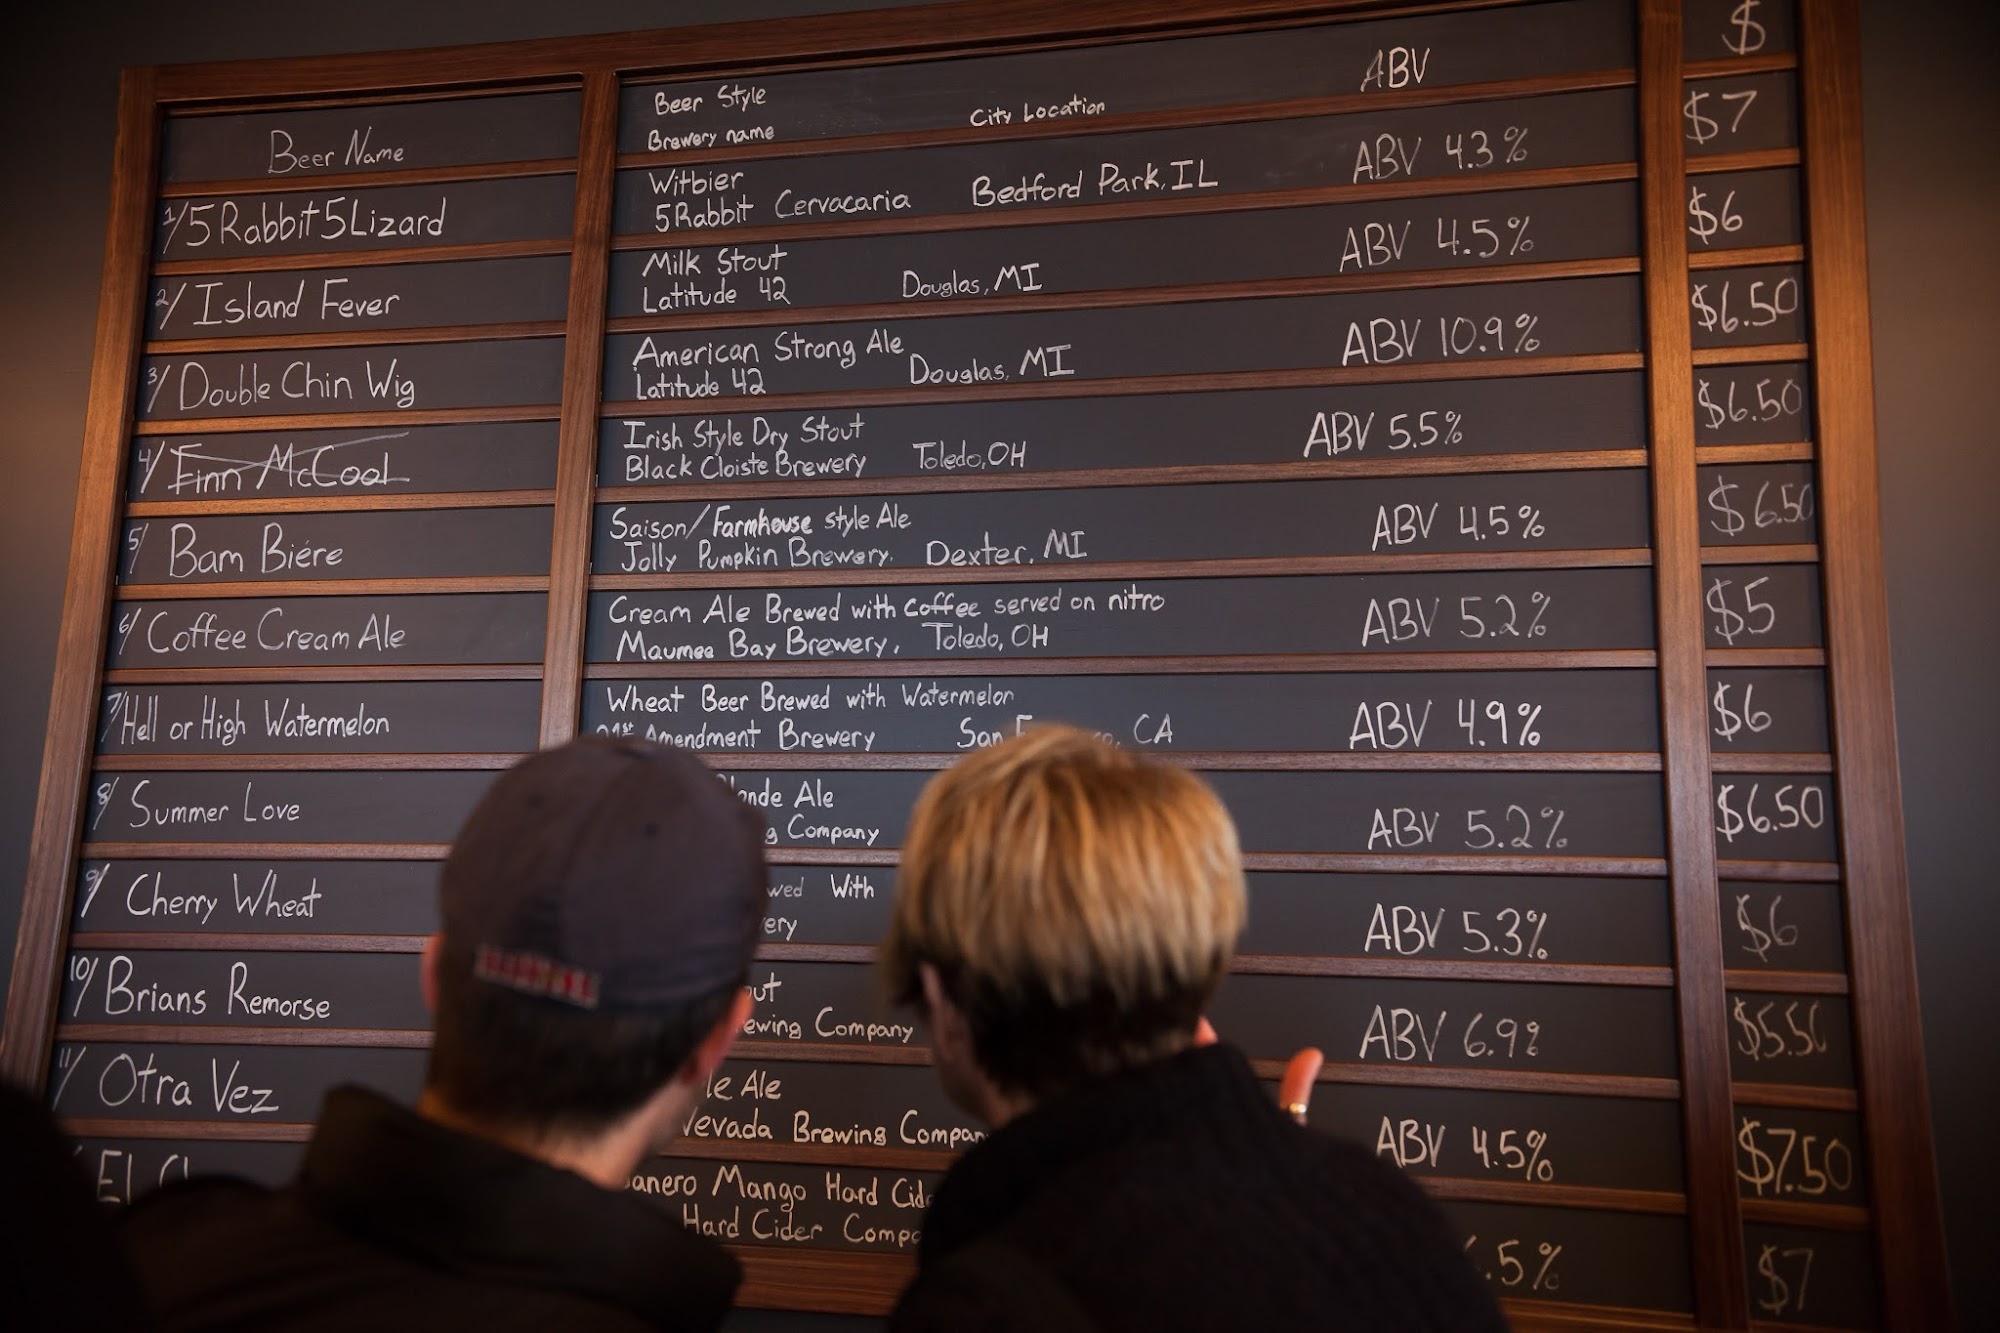 Beer Name
Beer Style
Brewery name City Location ABV $
1/ 5 Rabbit 5 Lizard
Witbier
5 Rabbit Cervacaria Bedford Park, IL ABV 4.3% $7
2/ Island Fever
Milk Stout
Latitude 42 Douglas, MI ABV 4.5% $6
3/ Double Chin Wig
American Strong Ale
Latitude 42 Douglas, MI ABV 10.9% $6.50
4/ Finn McCool
Irish Style Dry Stout
Black Cloiste Brewery Toledo, OH ABV 5.5% $6.50
5/ Bam Biére
Saison/Farmhouse style Ale
Jolly Pumpkin Brewery. Dexter, MI ABV 4.5% $6.50
6/ Coffee Cream Ale
Cream Ale Brewed with coffee served on nitro
Maumee Bay Brewery, Toledo, OH ABV 5.2% $5
7/ Hell or High Watermelon
Wheat Beer Brewed with Watermelon
Amendment Brewery San CA ABV 4.9% $6
8/ Summer Love
Ale
Company ABV 5.2% $6.50
9/ Cherry Wheat
With
ABV 5.3% $6
10/ Brians Remorse
Company ABV 6.9% $5.50
11/ Otra Vez
Ale
Nevada Brewing Company ABV 4.5% $7.50
El
Mango Hard
Hard Cider .5% $7